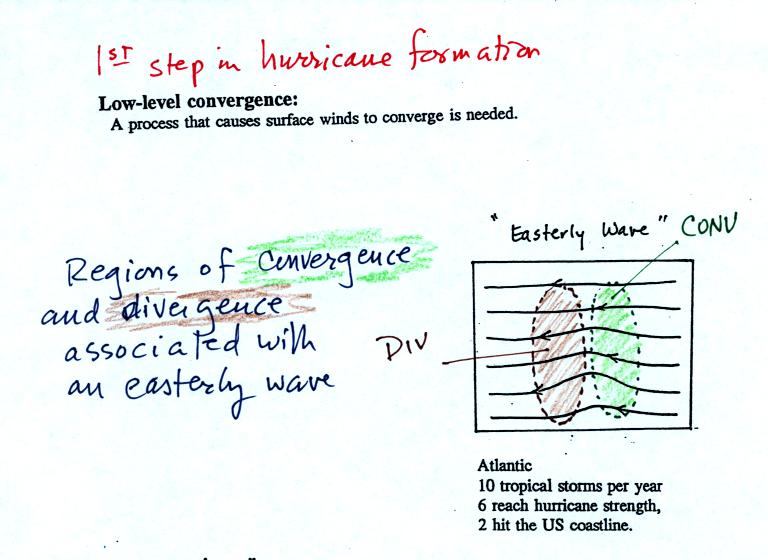 1ST step in hurricane formation
Low-level convergence:
A process that causes surface winds to converge is needed.
Regions of convergence
and divergence
associated with
an easterly wave
"Easterly Wave" CONV
DIV
Atlantic
10 tropical storms per year
6 reach hurricane strength,
2 hit the US coastline.